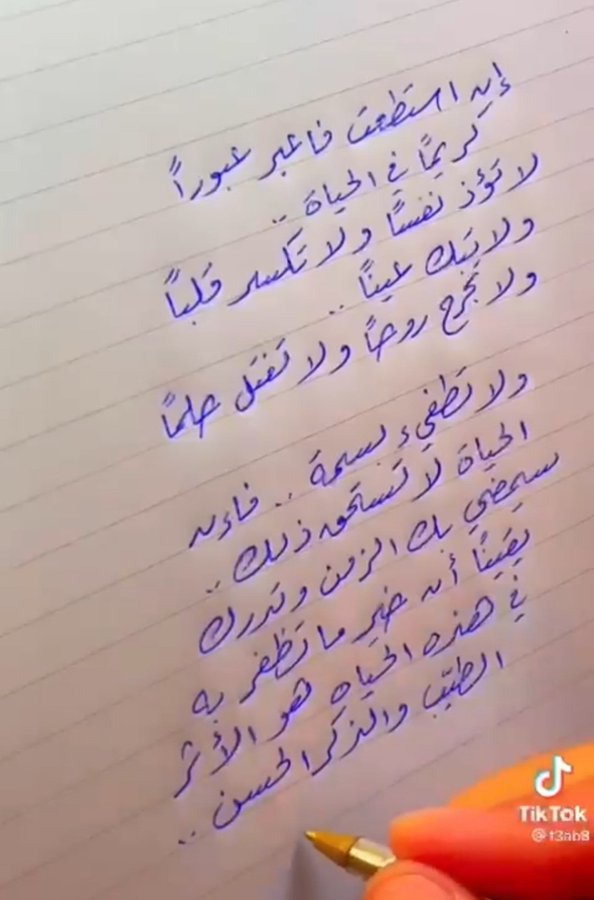 إن استطعت فاعبر عبوراً
كريمًا في الحياة ..
لا تؤذ نفسًا ولا تكسر قلبًا
ولا تبك عينًا ..
ولا تجرح روحًا ولا تقتل حلمًا
ولا تطفيء بسمة .. فإن
الحياة لا تستحق ذلك ..
سيمضي بك الزمن وتدرك
يقينًا أن خير ما تظفر به
في هذه الحياه هو الأثر
الطيّب والذكر الحسن ..
TikTok
@t3ab8